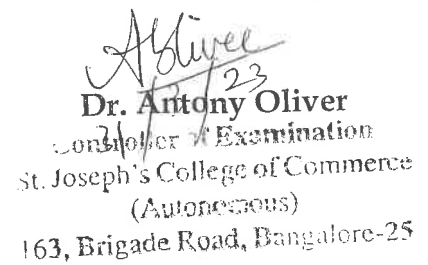 AOlivee
Dr. Antony Oliver
31/7/23
Controller of Examination
St. Joseph's College of Commerce
(Autonomous)
163, Brigade Road, Bangalore-25